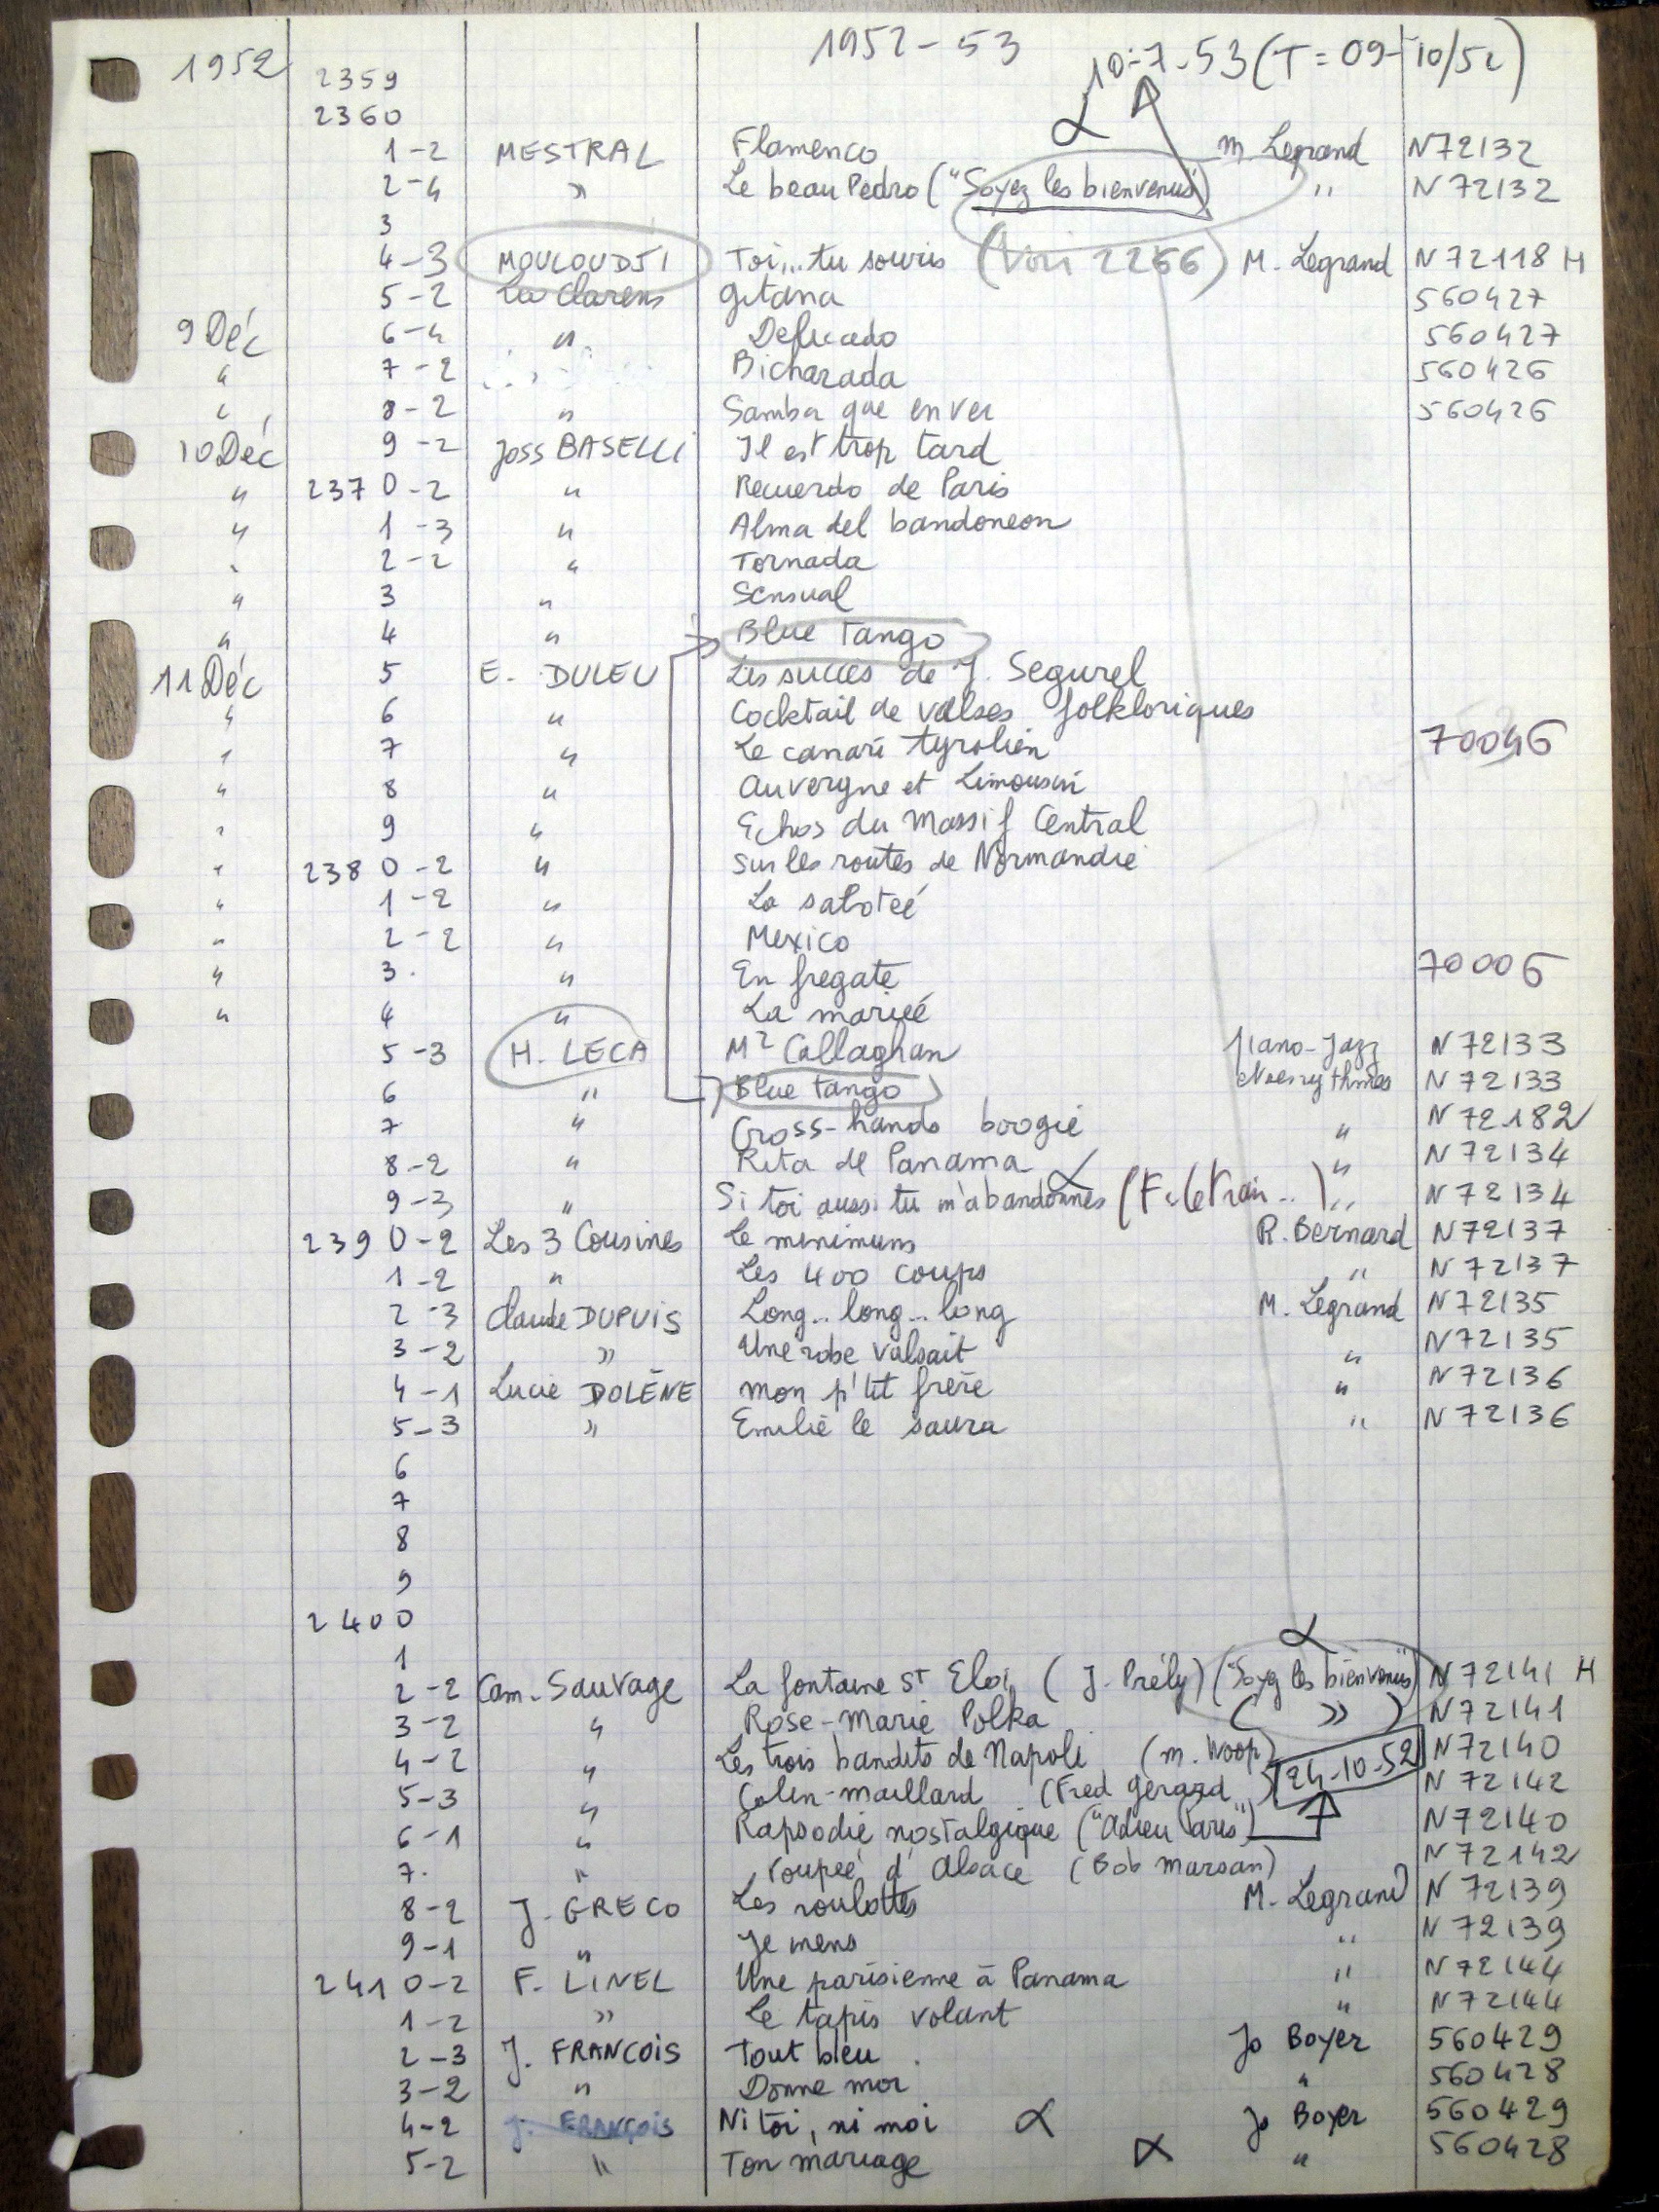 1952 - 53
1952 2359 10-7-53 (T = 09-10/52)
2360 α
1-2 MESTRAL Flamenco M Legrand N72132
2-4 " Le beau Pedro ("Soyez les bienvenus") " N72132
3
4-3 MOULOUDJI Toi... tu souris (Voir 2266) M. Legrand N72118 H
5-2 Leo Clarens gitana 560427
9 Déc 6-4 " 560427
" 7-2 Bicharada 560426
" 8-2 " Samba que en ver 560426
10 Déc 9-2 Joss BASELLI Il est trop tard
" 2370-2 " Recuerdo de Paris
" 1-3 " Alma del bandoneon
" 2-2 " Tornada
" 3 " Sensual
" 4 " Blue Tango
11 Déc 5 E. DULEU Les succes de J. Segurel
" 6 " Cocktail de valses folkloriques
" 7 " Le canari tyrolien 70046
" 8 " Auvergne et Limousin
" 9 " Echos du Massif Central
" 2380-2 " Sur les routes de Normandie
" 1-2 " La sabotée
" 2-2 " Mexico
" 3. " En fregate 70006
" 4 " La mariée
5-3 H. LECA Mr Callaghan piano-Jazz N72133
6 " Blue tango et ses rythmes N72133
7 " Cross-hands boogie " N72182
8-2 " Rita de Panama α " N72134
9-3 " Si toi aussi tu m'abandonnes (F. le train..) " N72134
2390-2 Les 3 Cousines Le minimum R. Bernard N72137
1-2 " Les 400 coups " N72137
2-3 Claude DUPUIS Long.. long.. long M. Legrand N72135
3-2 " Une robe valsait " N72135
4-1 Lucie DOLÈNE mon p'tit frère " N72136
5-3 " Emilie le saura " N72136
6
7
8
9
2400
1 α
2-2 Cam. Sauvage La fontaine St Eloi (J. Prély) ("Soyez les bienvenus") N72141 H
3-2 " Rose-Marie Polka ( " ) N72141
4-2 " Les trois bandits de Napoli (M. Woop) N72140
5-3 " Colin-maillard (Fred gerard) 24-10-52 N72142
6-1 " Rapsodie nostalgique ("Adieu Paris") N72140
7. " Poupée d'Alsace (Bob Marsan) N72142
8-2 J. GRECO Les roulottes M. Legrand N72139
9-1 " Je mens " N72139
2410-2 F. LINEL Une parisienne à Panama " N72144
1-2 " Le tapis volant " N72144
2-3 J. FRANCOIS Tout bleu Jo Boyer 560429
3-2 " Donne moi " 560428
4-2 J. FRANÇOIS Ni toi, ni moi α Jo Boyer 560429
5-2 " Ton mariage α " 560428